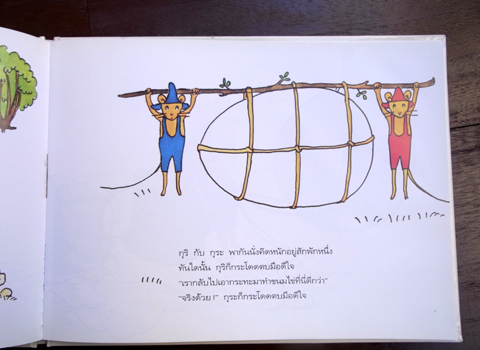 กุริ กับ กุระ พากันนั่งคิดหนักอยู่สักพักหนึ่ง
ทันใดนั้น กุริก็กระโดดตบมือดีใจ
"เรากลับไปเอากระทะมาทำขนมไข่ที่นี่ดีกว่า"
"จริงด้วย!" กุระก็กระโดดตบมือดีใจ